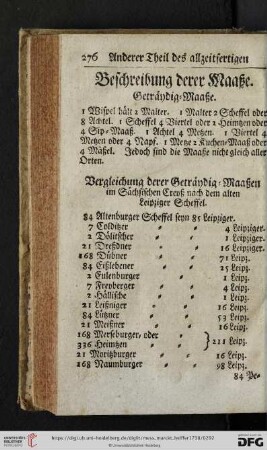 276 Anderer Theil des allzeitfertigen
Beschreibung derer Maaße.
Geträydig-Maaße.
1 Wispel hält 2 Malter. 1 Malter 2 Scheffel oder
8 Achtel. 1 Scheffel 4 Viertel oder 2 Heimtzen oder
4 Sip-Maaß. 1 Achtel 4 Metzen. 1 Viertel 4
Metzen oder 4 Napf. 1 Metze 2 Kuchen-Maaß oder
4 Mäßel. Jedoch sind die Maaße nicht gleich aller
Orten.
Vergleichung derer Geträydig-Maaßen
im Sächsischen Creyß nach dem alten
Leipziger Scheffel.
84 Altenburger Scheffel seyn 85 Leipziger.
7 Colditzer " " 4 Leipziger.
2 Dölitscher " " 1 Leipziger.
21 Dreßdner " " 16 Leipziger.
168 Dübner " " 71 Leipz.
84 Eißlebener " " 25 Leipz.
2 Eulenburger " " 1 Leipz.
7 Freyberger " " 4 Leipz.
2 Hällische " " 1 Leipz.
21 Leißniger " " 16 Leipz.
84 Lützner " " 53 Leipz.
21 Meißner " " 16 Leipz.
168 Merseburger, oder
336 Heimtzen " } 211 Leipz.
21 Moritzburger " " 16 Leipz.
168 Naumburger " " 98 Leipz.
84 Pe-
UNIVERSITÄTS-
BIBLIOTHEK
HEIDELBERG
© Universitätsbibliothek Heidelberg
DFG